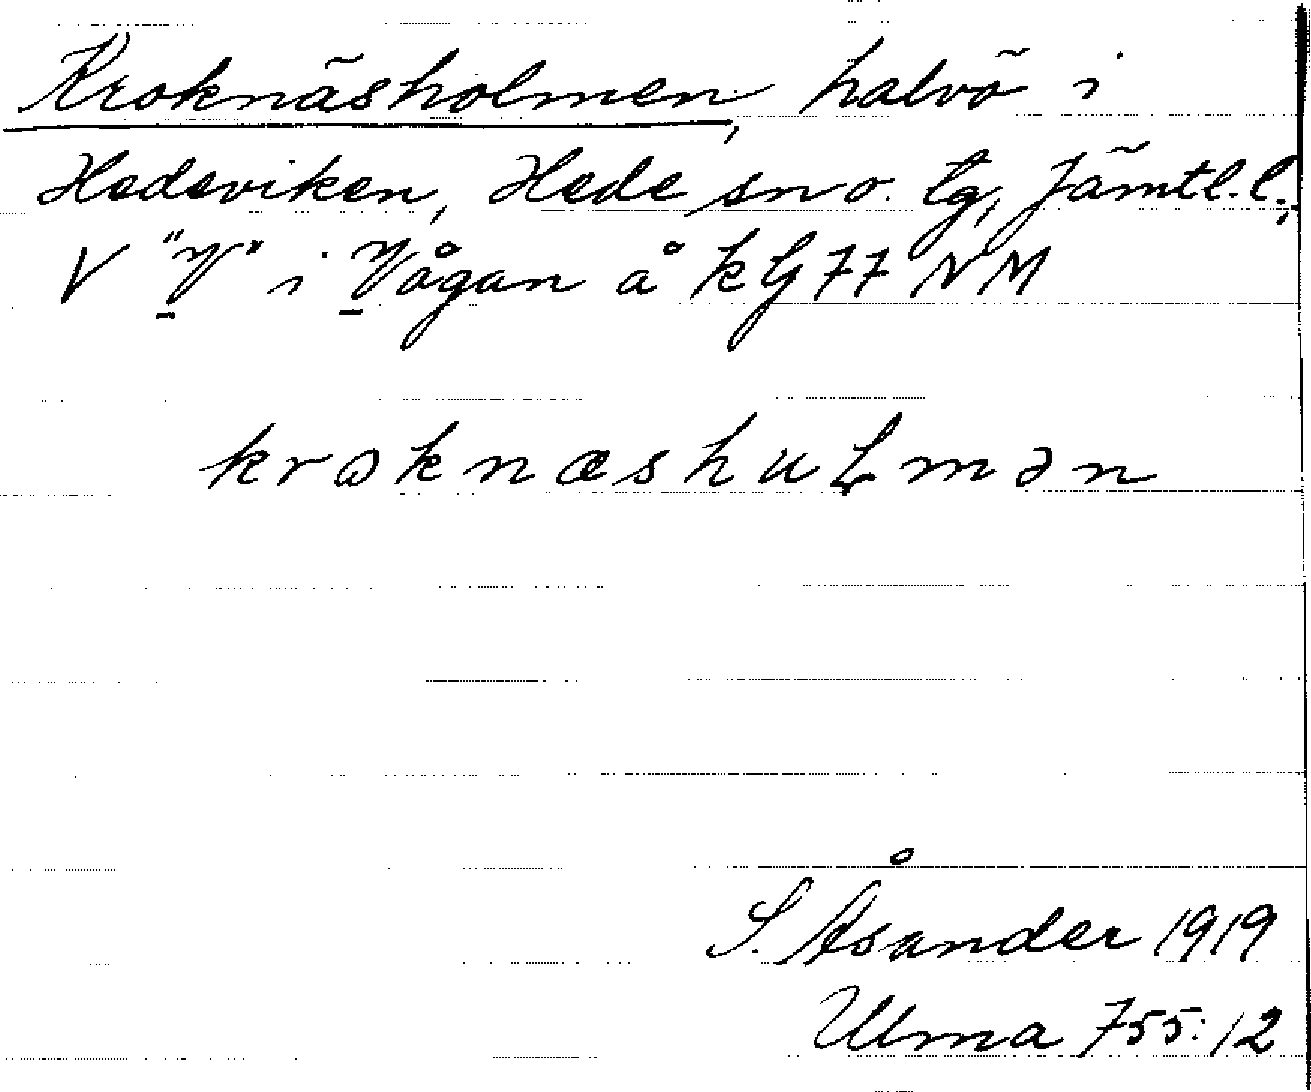 Kroknäsholmen, halvö i
Hedeviken, Hede sn o. tg, Jämtl. l.,
V "V" i Vågan å kG 77 NM
krɷknæshuɫmən
S. Åsander 1919
Ulma 755:12